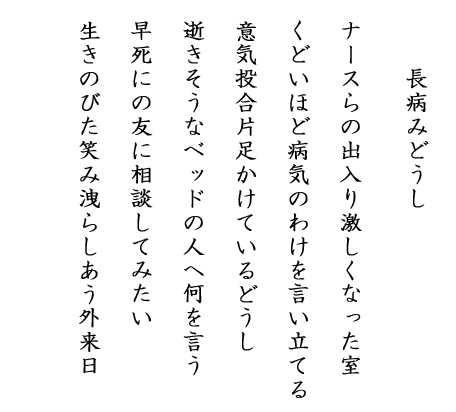 長病みどうし
ナースらの出入り激しくなった室
くどいほど病気のわけを言い立てる
意気投合片足かけているどうし
逝きそうなベッドの人へ何を言う
早死にの友に相談してみたい
生きのびた笑み洩らしあう外来日